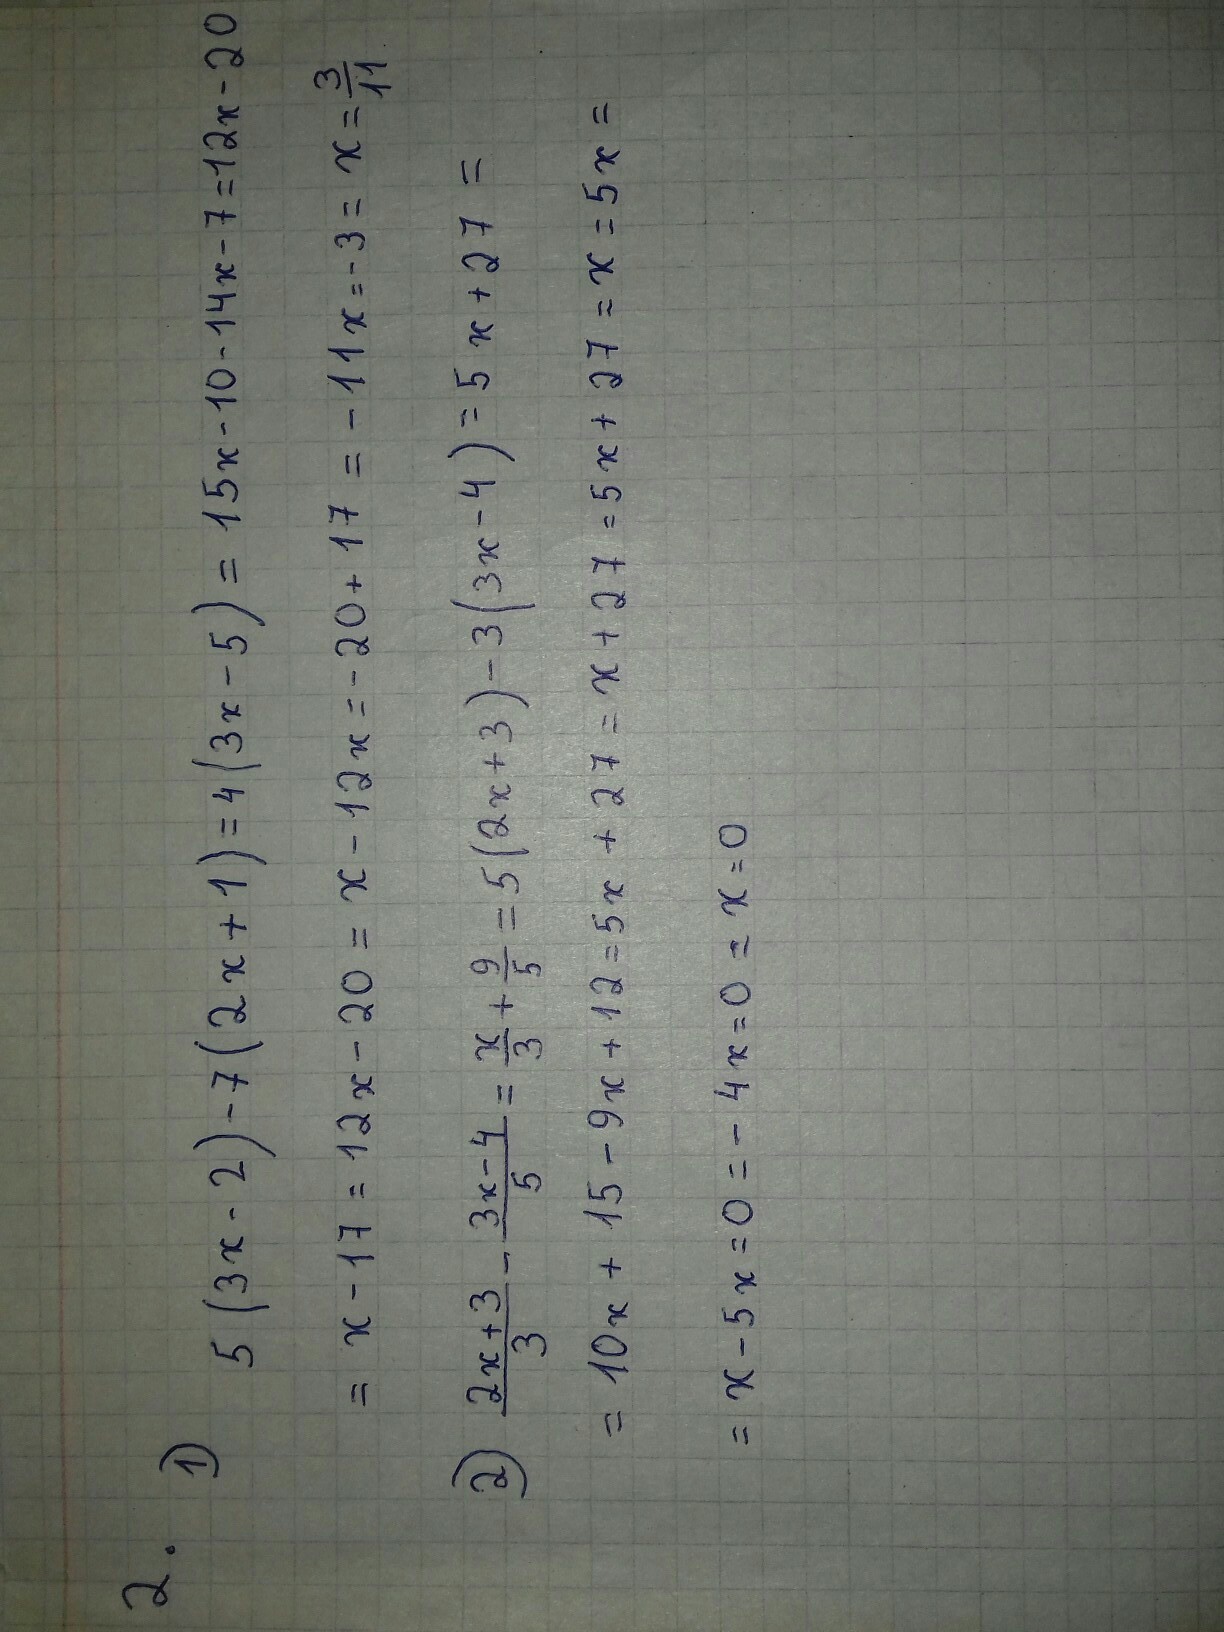 2.
1) 5(3x-2)-7(2x+1)=4(3x-5)=15x-10-14x-7=12x-20
=x-17=12x-20=x-12x=-20+17=-11x=-3=x=3/11
2) (2x+3)/3-(3x-4)/5=x/3+9/5=5(2x+3)-3(3x-4)=5x+27=
=10x+15-9x+12=5x+27=x+27=5x+27=x=5x=
=x-5x=0=-4x=0=x=0